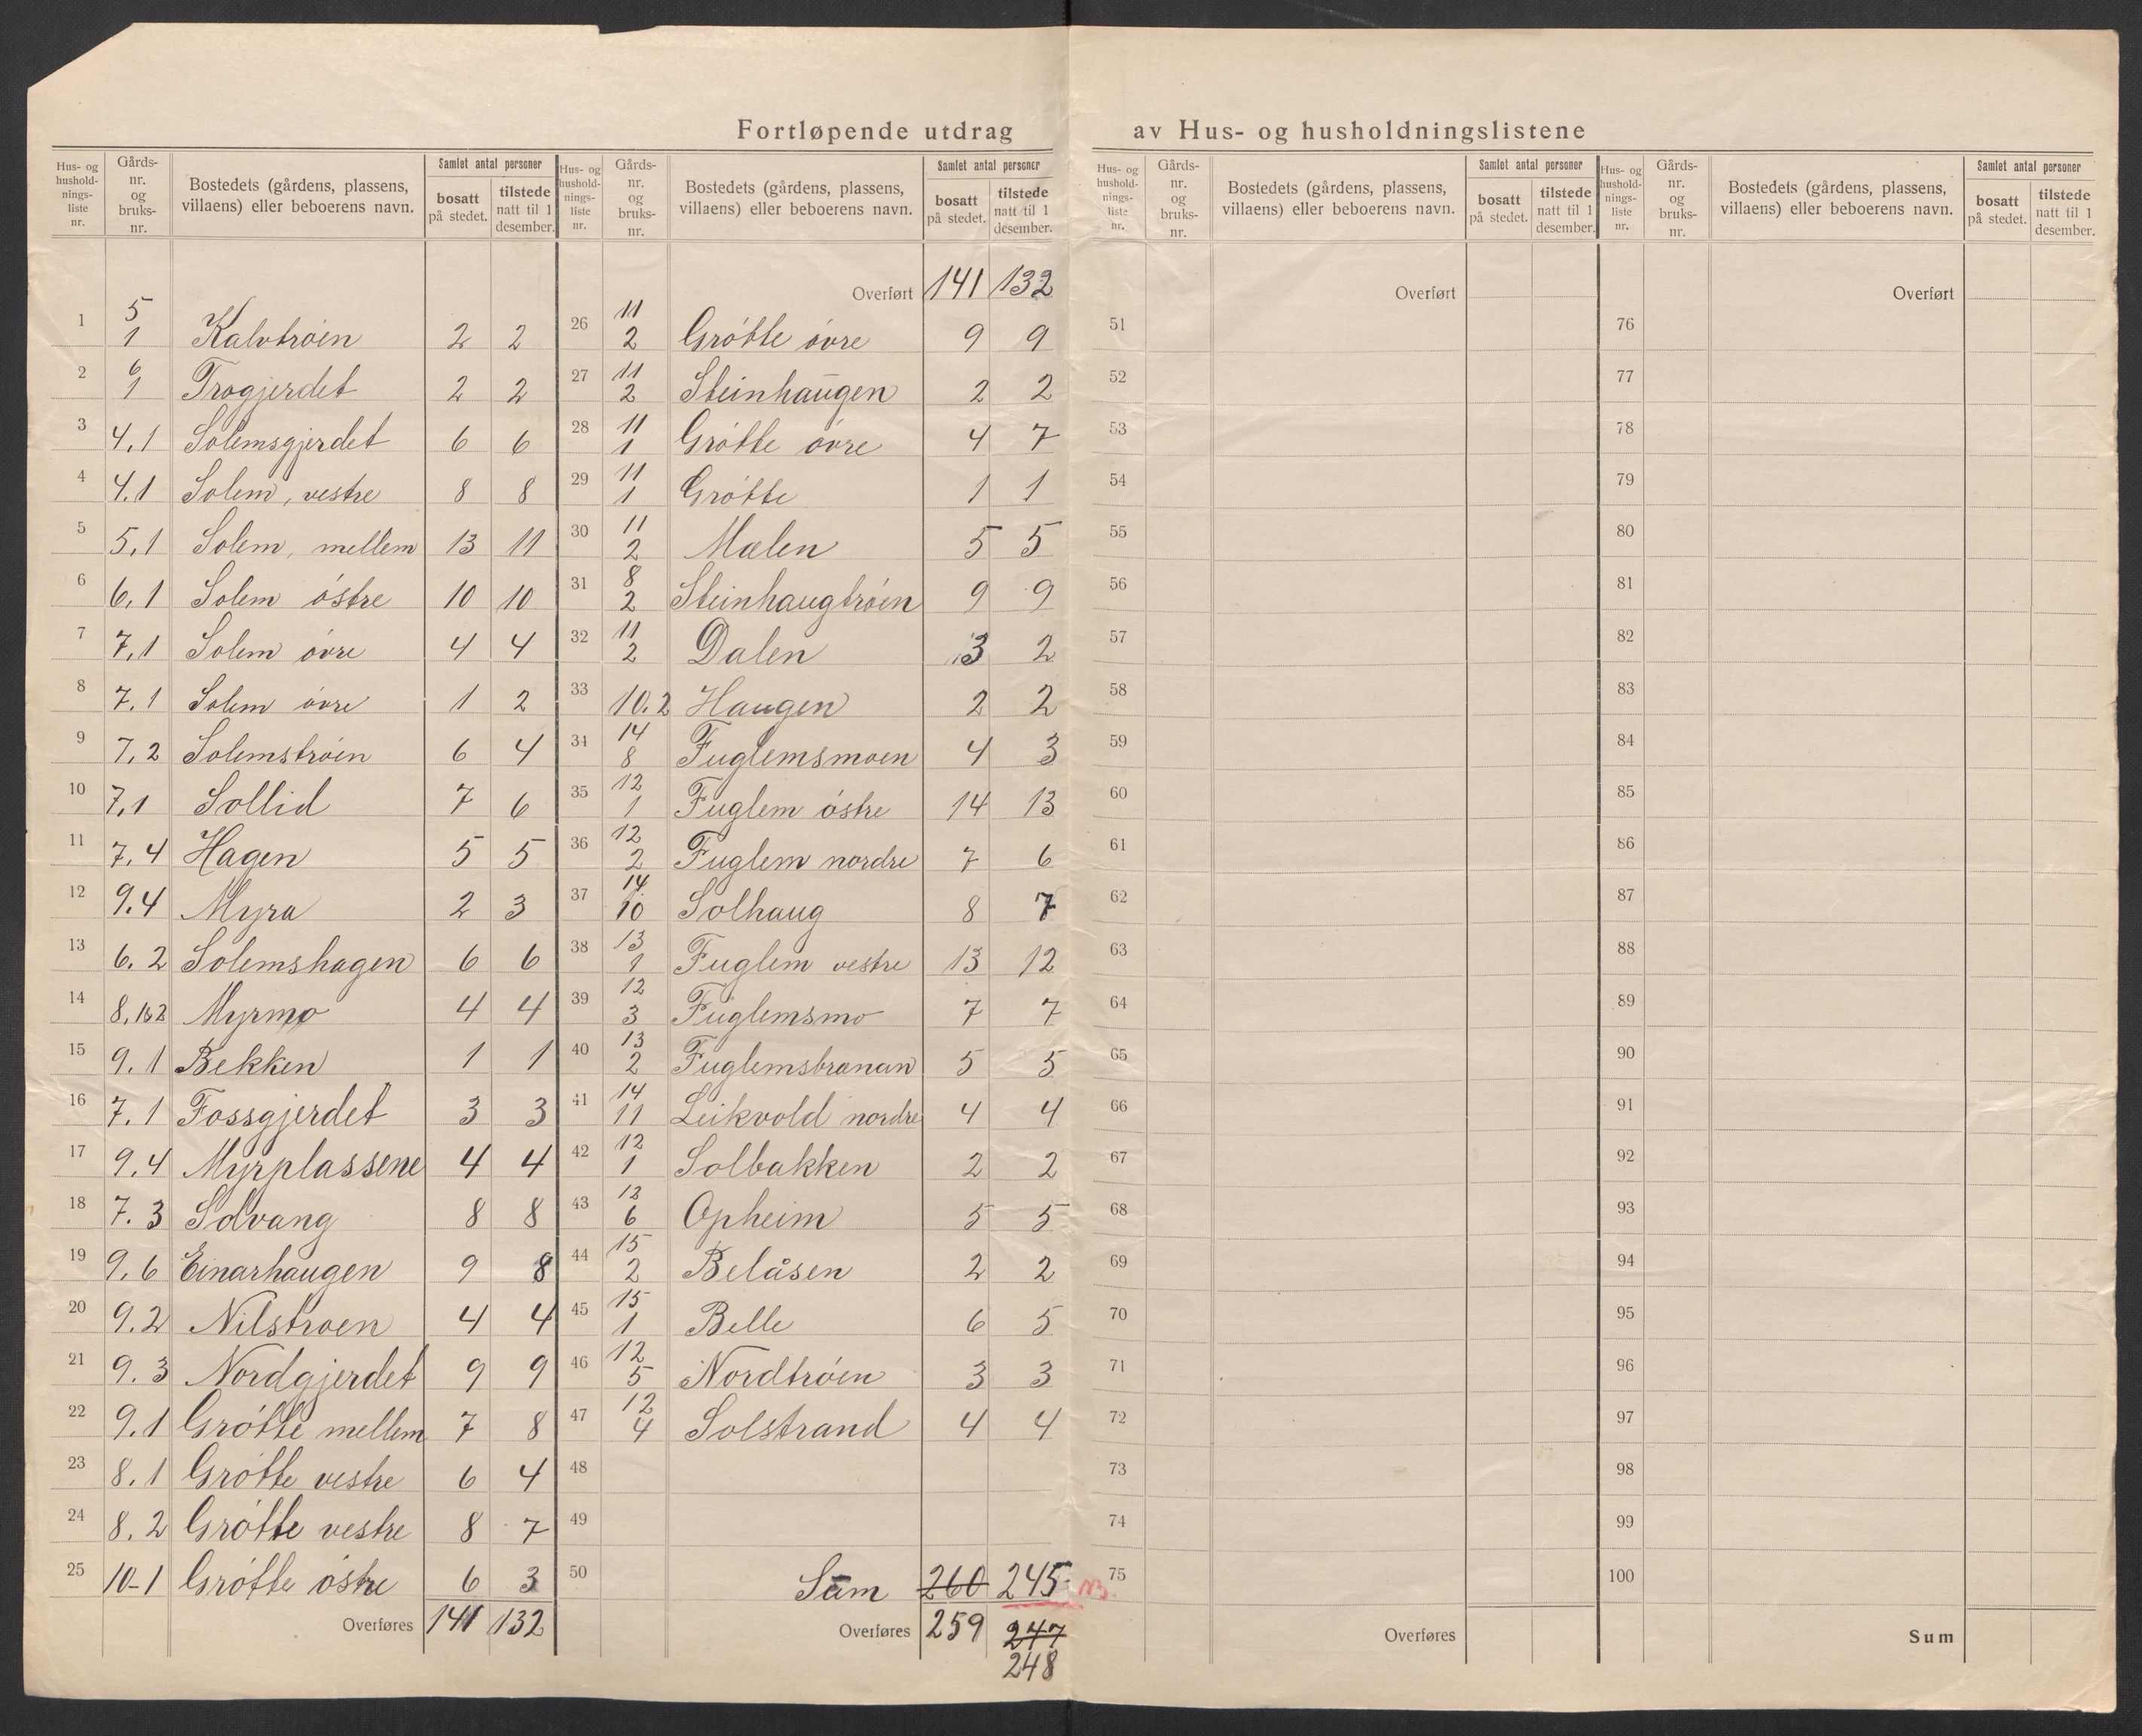 Fortløpende utdrag av Hus- og husholdningslistene
Hus- og husholdnings- liste nr. | Gårds- nr. og bruks- nr. | Bostedets (gårdens, plassens, villaens) eller beboerens navn. | Samlet antal personer | bosatt på stedet. | tilstede natt til 1 desember.
1 5 1 Kalvtrøen 2 2
2 6 1 Trøgjerdet 2 2
3 4.1 Solemsgjerdet 6 6
4 4.1 Solem, vestre 8 8
5 5.1 Solem, mellem 13 11
6 6.1 Solem østre 10 10
7 7.1 Solem øvre 4 4
8 7.1 Solem øvre 1 2
9 7.2 Solemstrøen 6 4
10 7.1 Sollid 7 6
11 7.4 Hagen 5 5
12 9.4 Myra 2 3
13 6.2 Solemshagen 6 6
14 8.1&2 Myrmo 4 4
15 9.1 Bekken 1 1
16 7.1 Fossgjerdet 3 3
17 9.4 Myrplassene 4 4
18 7.3 Solvang 8 8
19 9.6 Einarhaugen 9 8
20 9.2 Nilstrøen 4 4
21 9.3 Nordgjerdet 9 9
22 9.1 Grøtte mellem 7 8
23 8.1 Grøtte vestre 6 4
24 8.2 Grøtte vestre 8 7
25 10-1 Grøtte østre 6 3
Overføres 141 132
Hus- og husholdnings- liste nr. | Gårds- nr. og bruks- nr. | Bostedets (gårdens, plassens, villaens) eller beboerens navn. | Samlet antal personer | bosatt på stedet. | tilstede natt til 1 desember.
Overført 141 132
26 11 2 Grøtte øvre 9 9
27 11 2 Steinhaugen 2 2
28 11 1 Grøtte øvre 4 7
29 11 1 Grøtte 1 1
30 11 2 Mælen 5 5
31 8 2 Steinhaugtrøen 9 9
32 11 2 Dalen 3 2
33 10.2 Haugen 2 2
34 14 8 Fuglemsmoen 4 3
35 12 1 Fuglem østre 14 13
36 12 2 Fuglem nordre 7 6
37 14 10 Solhaug 8 7
38 13 1 Fuglem vestre 13 12
39 12 3 Fuglemsmo 7 7
40 13 2 Fuglemstranan 5 5
41 14 11 Leikvold nordre 4 4
42 12 1 Solbakken 2 2
43 12 6 Opheim 5 5
44 15 2 Belåsen 2 2
45 15 1 Belle 6 5
46 12 5 Nordtrøen 3 3
47 12 4 Solstrand 4 4
48
49
50 Sum 260 245
Overføres 259 247
248
Hus- og husholdnings- liste nr. | Gårds- nr. og bruks- nr. | Bostedets (gårdens, plassens, villaens) eller beboerens navn. | Samlet antal personer | bosatt på stedet. | tilstede natt til 1 desember.
Overført
51
52
53
54
55
56
57
58
59
60
61
62
63
64
65
66
67
68
69
70
71
72
73
74
75
Overføres
Hus- og husholdnings- liste nr. | Gårds- nr. og bruks- nr. | Bostedets (gårdens, plassens, villaens) eller beboerens navn. | Samlet antal personer | bosatt på stedet. | tilstede natt til 1 desember.
Overført
76
77
78
79
80
81
82
83
84
85
86
87
88
89
90
91
92
93
94
95
96
97
98
99
100
Sum